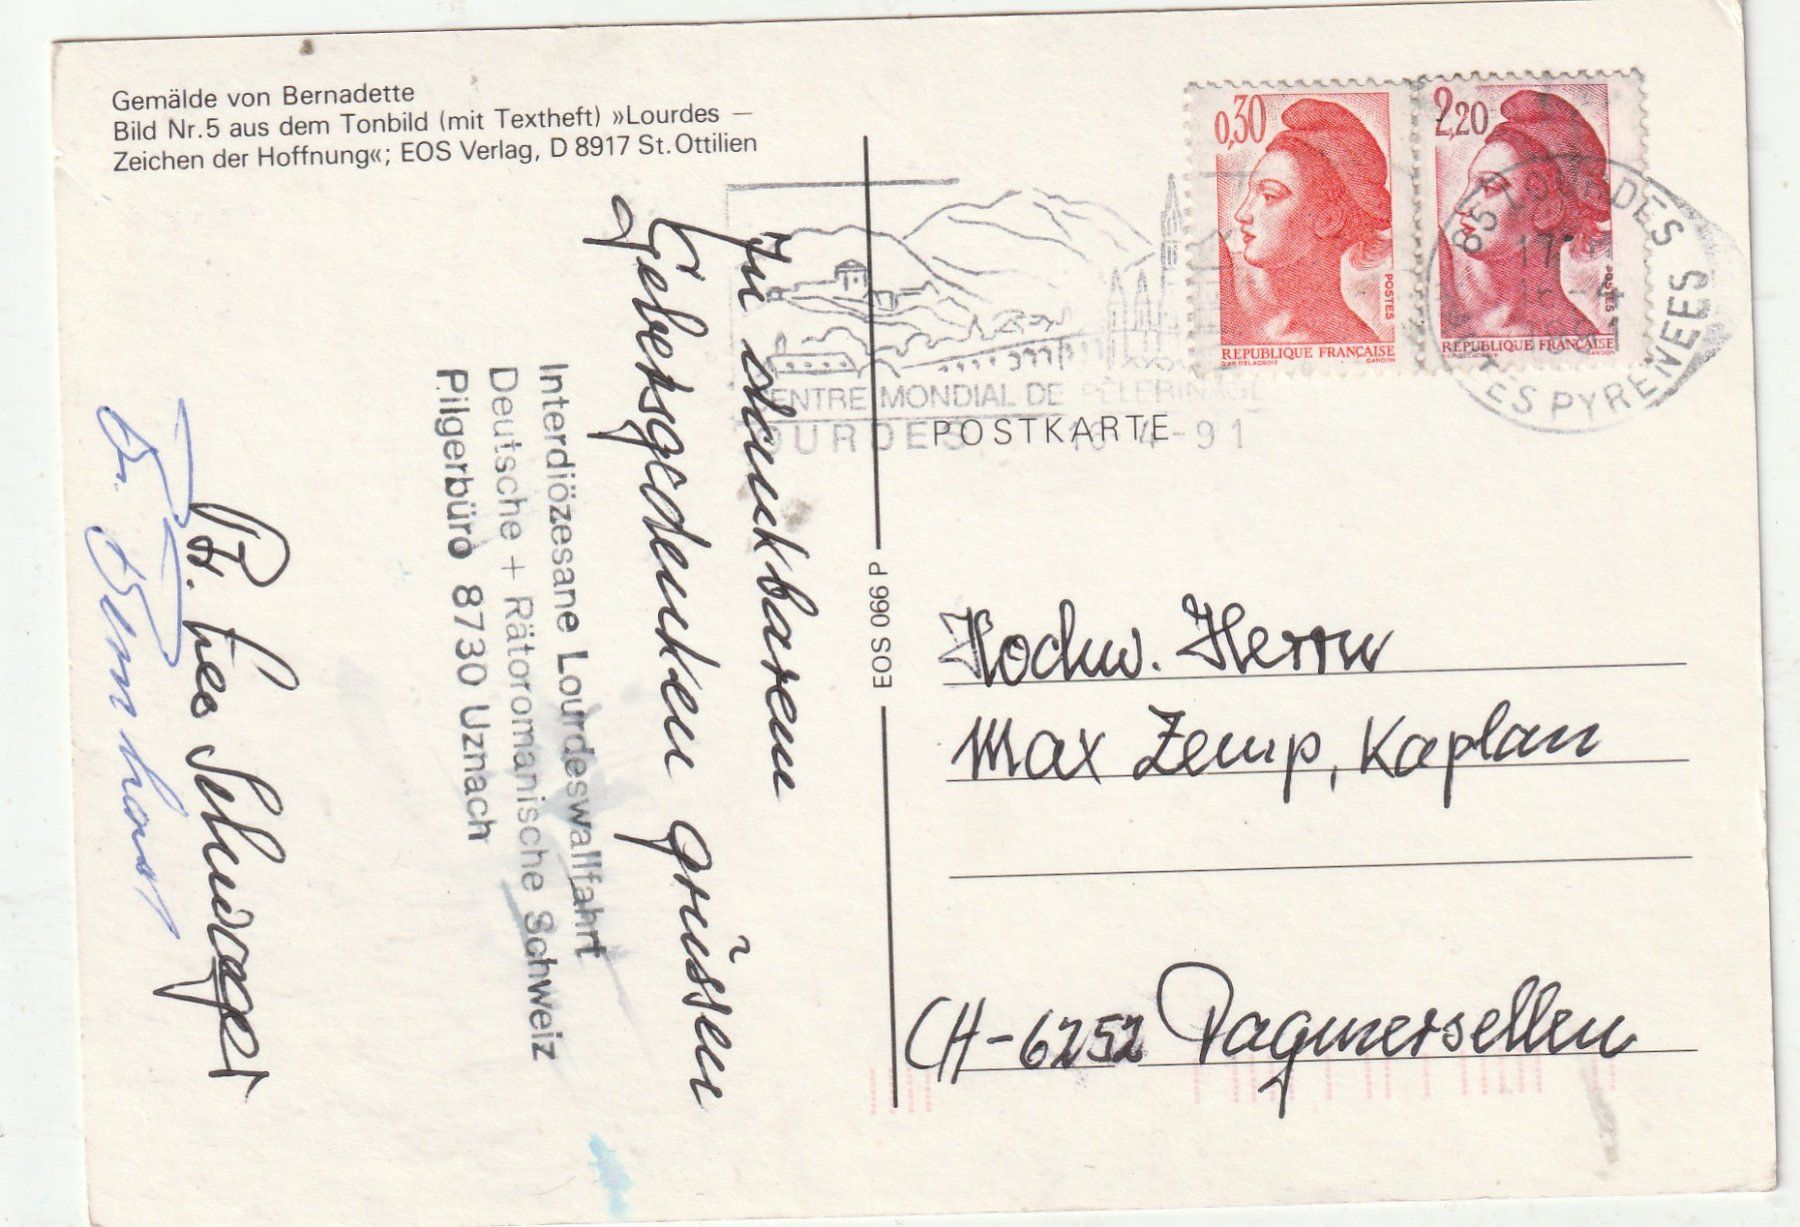 Gemälde von Bernadette
Bild Nr.5 aus dem Tonbild (mit Textheft) »Lourdes –
Zeichen der Hoffnung«; EOS Verlag, D 8917 St. Ottilien
In dankbarem
Gebetsgedenken grüssen
Interdiözesane Lourdeswallfahrt
Deutsche + Rätoromanische Schweiz
Pilgerbüro 8730 Uznach
EOS 066 P
0,30
POSTES
REPUBLIQUE FRANÇAISE
D'AP. DELACROIX GANDON
2,20
POSTES
REPUBLIQUE FRANÇAISE
65 LOURDES
17
PYRENEES
CENTRE MONDIAL DE PÈLERINAGE
LOURDES 16-4-91
POSTKARTE
Hochw. Herrn
Max Zemp, Kaplan
CH-6252 Dagmersellen